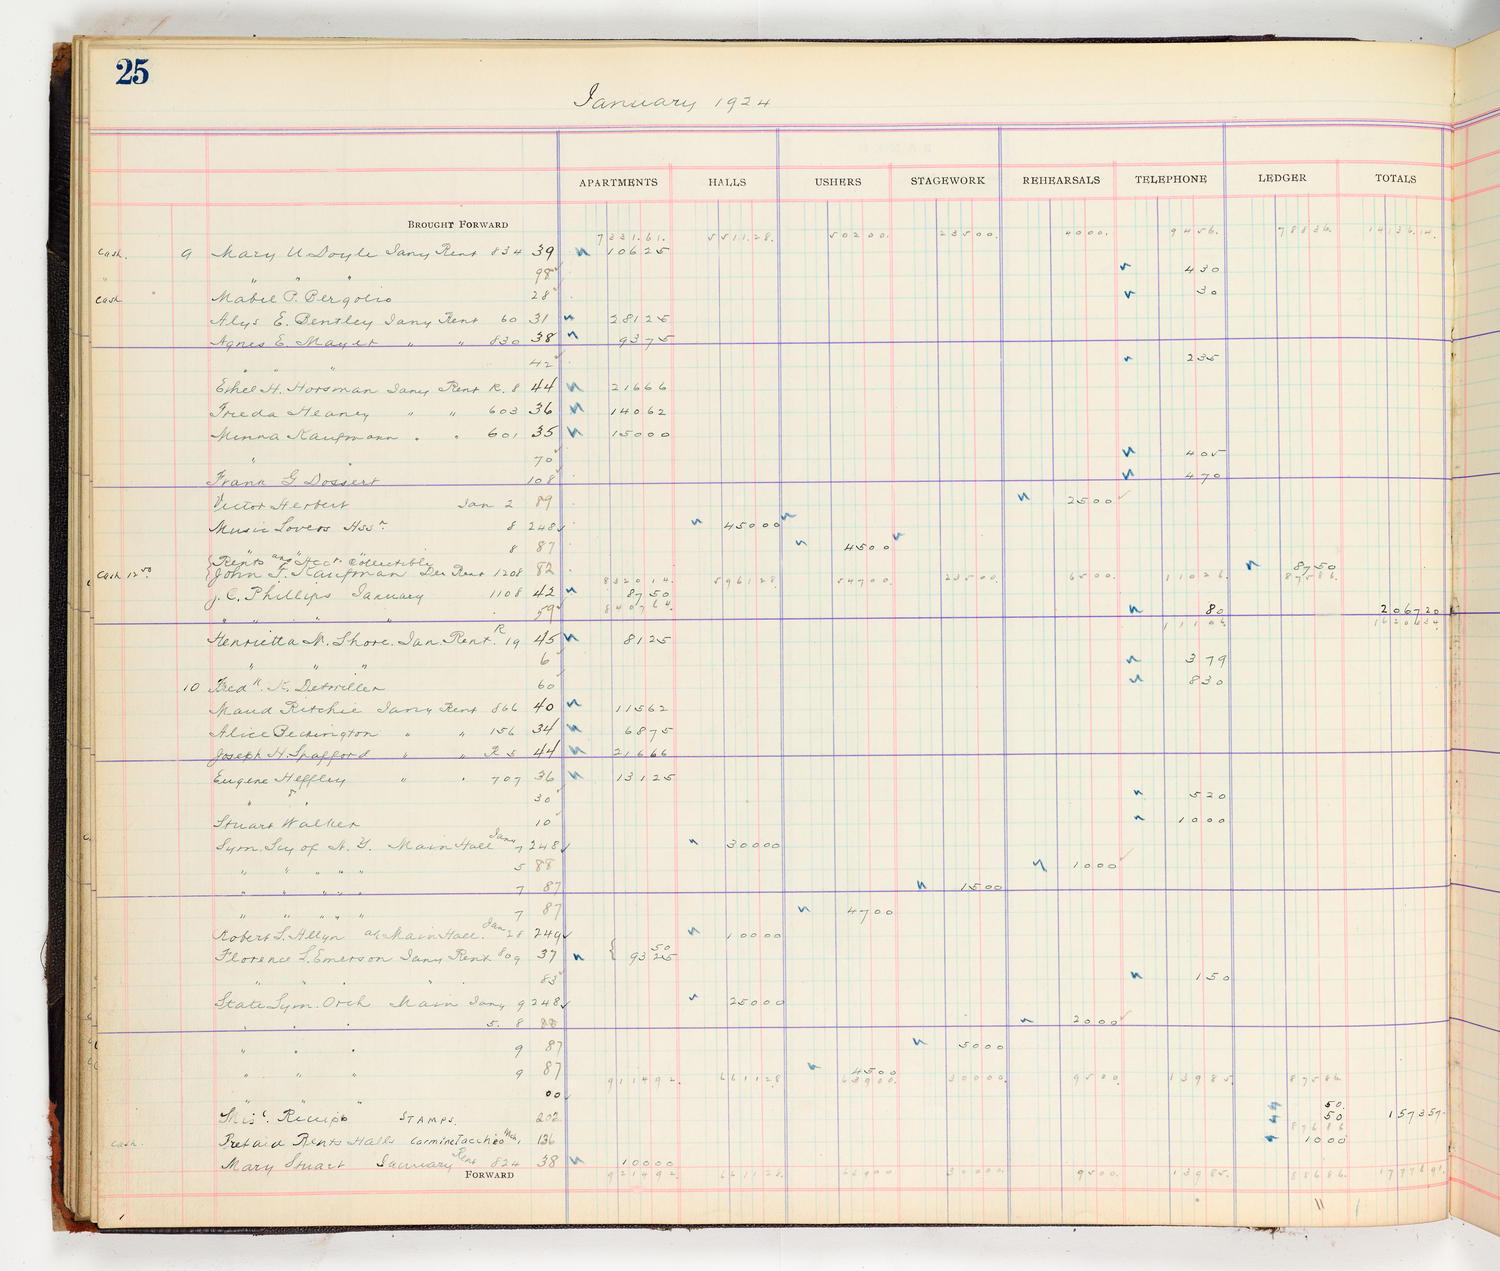 25
January 1924
APARTMENTS HALLS USHERS STAGEWORK REHEARSALS TELEPHONE LEDGER TOTALS
BROUGHT FORWARD
7331.61. 5511.28. 50200. 23500. 4000. 9456. 78836. 14136.14.
Cash. 9 Mary U Doyle Jany Rent 834 39 10625
" " " 98 430
Cash Mabel P. Bergolio 28 30
Alys E. Bentley Jany Rent 60 31 28125
Agnes E. Mayer " " 830 38 9375
" " " 42 235
Ethel H. Horsman Jany Rent R. 8 44 21666
Frieda Heaney " " 603 36 14062
Minna Kaufmann " " 601 35 15000
" " 70 405
Frank G Dossert 108 470
Victor Herbert Jan 2 89 2500
Music Lovers Assn 8 248 45000
" " " 8 87 4500
Rents and Acct. Collectible
Cash 12.50 John F. Kaufman Dec Rent 1208 82 8750
832014. 596128. 54700. 23500. 6500. 11026. 87586.
J. C. Phillips January 1108 42 8750
" " " " 59 840764. 80 206720
11106. 1620634
Henrietta N. Shore. Jan. Rent. R 19 45 8125
" " " 6 379
10 Fred'k. K. Detwiller 60 830
Maud Ritchie Jany Rent 866 40 11562
Alice Beckington " " 156 34 6875
Joseph H. Spafford " " R 5 44 21666
Eugene Heffley " " 707 36 13125
" " 30 520
Stuart Walker 10 1000
Sym. Scy of N. Y. Main Hall Jany 7 248 30000
" " " " " 5 88 1000
" " " " " 7 87 1500
" " " " " 7 87 4700
Robert S. Allyn a/c Main Hall. Jan 28 249 10000
Florence L. Emerson Jany Rent 809 37 { 9350
" " " " " 83 150
State Sym. Orch Main Jany 9 248 25000
" " " 5. 8 88 2000
" " " 9 87 5000
" " " 9 87 4500
911492. 661128 63900. 30000. 9500. 13985. 87586
" " " 00 50.
Misc. Receipts STAMPS. 202 50 157357
87686
Cash. Prepaid Rents Halls Carmine 136 1000
Mary Stuart January Rent 824 38 10000
FORWARD 921492. 661128. 63900 30000. 9500. 13985. 88686. 1777891.